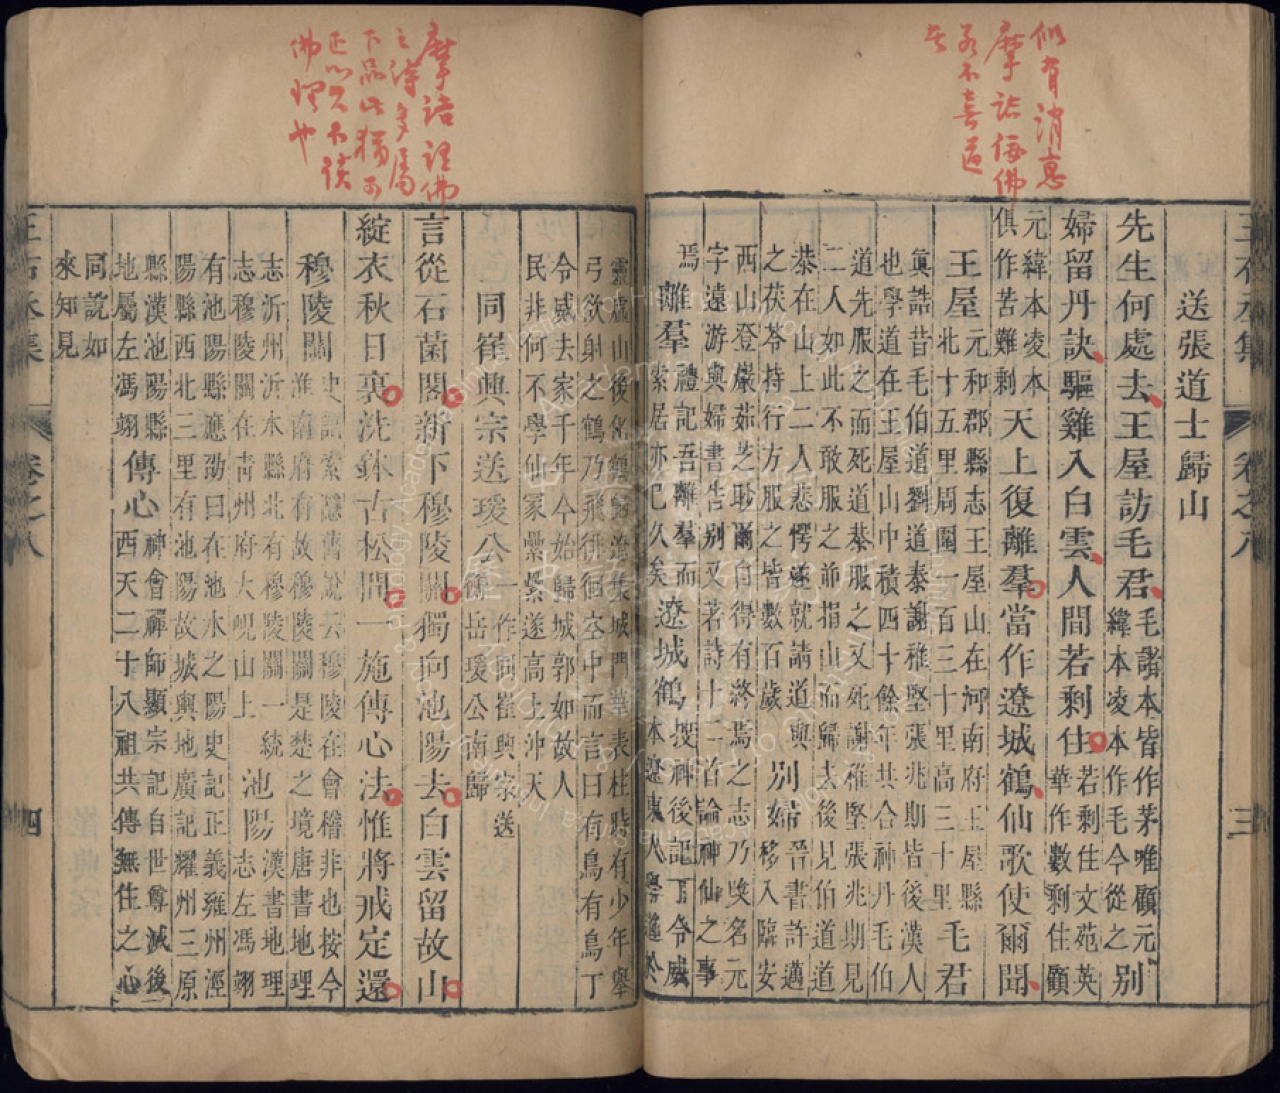 似有消息
摩詰侫佛
不喜道
送張道士歸山
先生何處去王屋訪毛君毛諸本皆作茅唯顧元緯本凌本作毛今從之别
婦留丹訣驅雞入白雲人間若剩住若剩住文苑英華作數剩住顧
元緯本凌本俱作苦難剩天上復離羣當作遼城鶴仙歌使爾聞
王屋元和郡縣志王屋山在河南府王屋縣北十五里周圍一百三十里高三十里毛君
眞誥昔毛伯道劉道泰謝稚堅張兆期皆後漢人
也學道在王屋山中積四十餘年共合神丹毛伯
道先服之而死道恭服之又死謝稚堅張兆期見
二人如此不敢服之前指山而歸去後見伯道道
恭在山上二人悲愕遂就請道與
之茯苓持行方服之皆數百歲别婦晉書許邁移入臨安
西山登巖茹芝眇爾自得有終焉之志乃改名元
字遠游與婦書告别又著詩十二首論神仙之事
焉離羣禮記吾離羣而索居亦已久矣遼城鶴搜神後記丁令威本遼東人學道於
靈虛山後化鶴歸遼集城門華表柱時有少年舉
弓欲射之鶴乃飛徘徊空中而言曰有鳥有鳥丁
令威去家千年今始歸城郭如故人
民非何不學仙冢纍纍遂高上沖天
同崔興宗送瑗公一作同崔興宗送衡岳瑗公南歸
言從石菌閣新下穆陵關獨向池陽去白雲留故山
綻衣秋日裏洗鉢古松間一施傳心法惟將戒定還
穆陵關史記索隱舊說云穆陵在會稽非也按今淮南府有故穆陵關是楚之境唐書地理
志沂州沂水縣北有穆陵關一統志穆陵關在青州府大峴山上池陽漢書地理志左馮翊
有池陽縣應劭曰在池水之陽史記正義雍州涇
陽縣西北三里有池陽故城輿地廣記耀州三原
縣漢池陽縣地屬左馮翊傳心神會禪師顯宗記自世尊滅後西天二十八祖共傳無住之心
同說如
來知見
摩詰詔佛
之詩多屬
下品此猶可
正以不讀
佛理也
王右丞集
卷之八
三
四